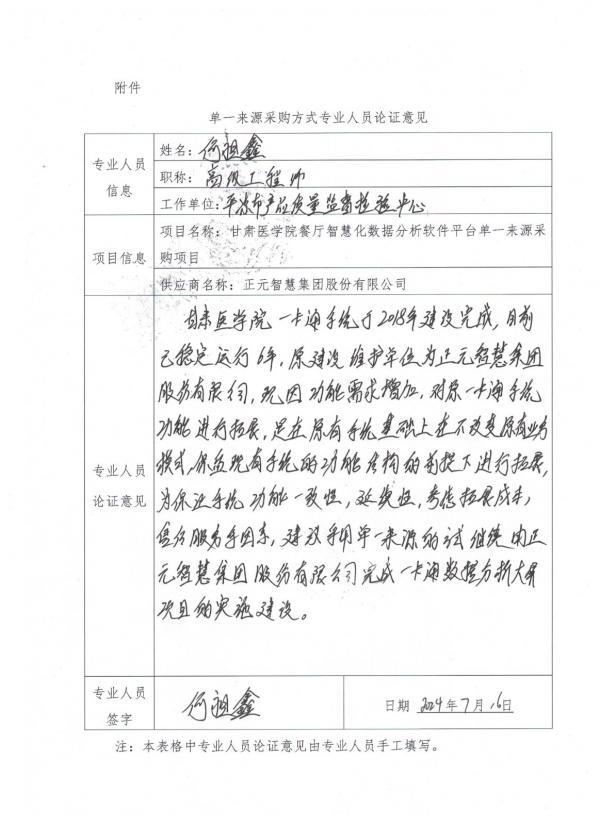 附件
单一来源采购方式专业人员论证意见
专业人员
信息
姓名：何祖鑫
职称：高级工程师
工作单位：平凉市产品质量监督检验中心
项目信息
项目名称：甘肃医学院餐厅智慧化数据分析软件平台单一来源采
购项目
供应商名称：正元智慧集团股份有限公司
专业人员
论证意见
甘肃医学院一卡通系统于2018年建设完成，目前
已稳定运行6年，原建设维护单位为正元智慧集团
股份有限公司，现因功能需求增加，对原一卡通系统
功能进行拓展，是在原有系统基础上在不改变原有业务
模式，保益现有系统的功能结构的前提下进行拓展，
为保证系统功能一致性，延续性，考虑拓展成本，
售后服务等因素，建议采用单一来源的 继续由正
元智慧集团股份有限公司完成一卡通数据分析大屏
项目的实施建设。
专业人员
签字
何祖鑫
日期 2024年7月16日
注：本表格中专业人员论证意见由专业人员手工填写。